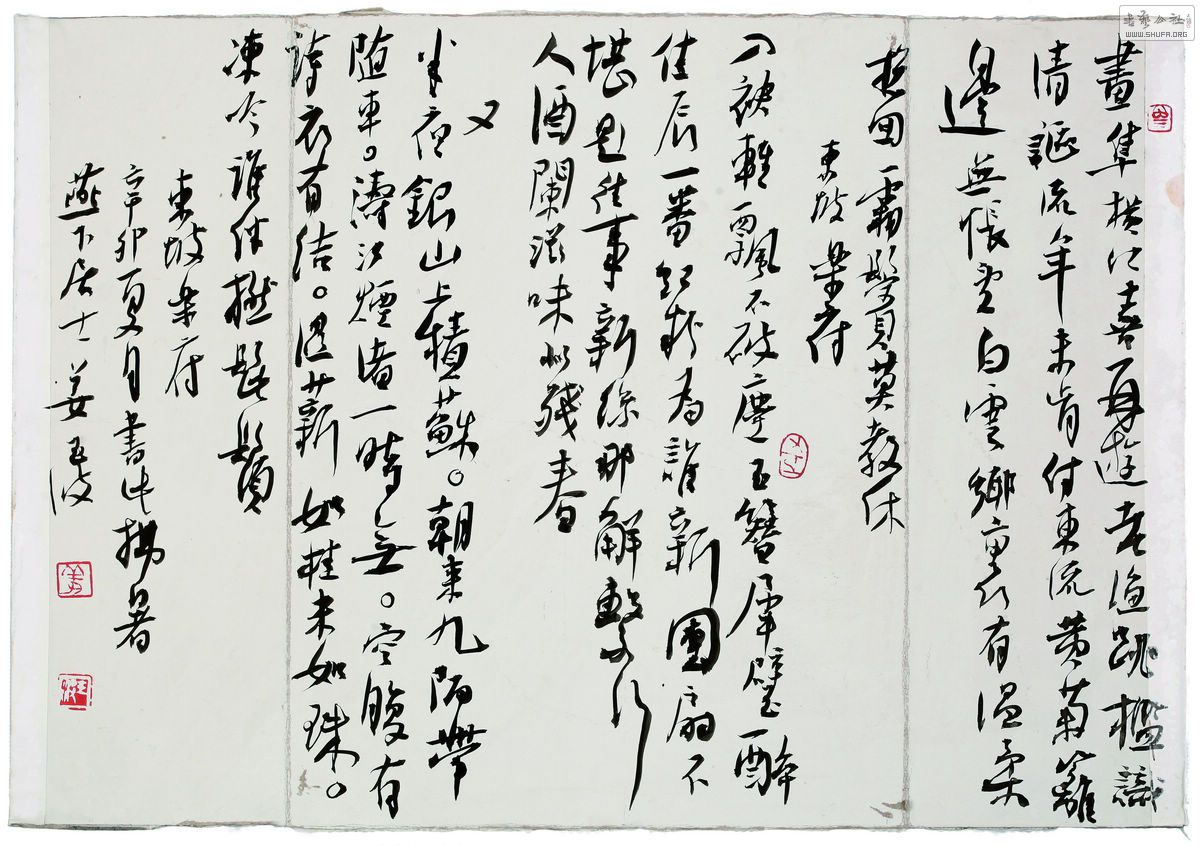 書法公社
WWW.SHUFA.ORG
畫隼橫江喜再遊老漁跳檻識
清謳流年未肯付東流黃菊籬
邊無悵望白雲鄉裏有溫柔
挽回霜鬢莫教休
東坡樂府
入袂輕飄不破塵玉簪犀璧醉
佳辰一番紅粉為誰新團扇不
堪題往事新絲那解繫行
人酒闌滋味似殘春
又
半夜銀山上積蘇。朝來九陌帶
隨車。濤江煙渚一時無。空腹有
詩衣有結。濕薪如桂米如珠。
凍吟誰伴撚髭鬚
東坡樂府
辛卯夏月書此
燕下居士姜玉波